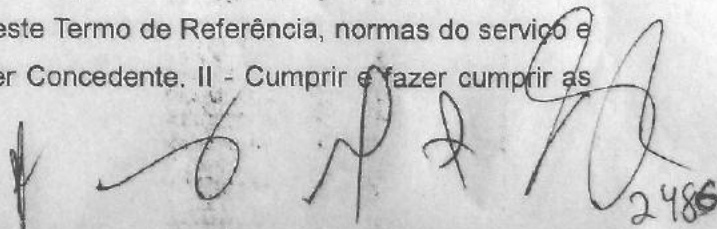 este Termo de Referência, normas do serviço e
er Concedente. II - Cumprir e fazer cumprir as
2486